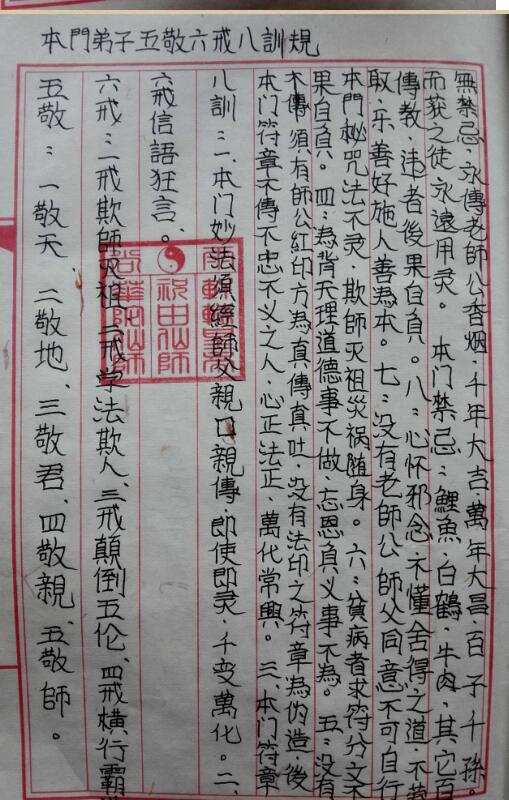 本門弟子五敬六戒八訓規
五敬：一敬天、二敬地、三敬君、四敬親、五敬師。
六戒：一戒欺師灭祖、二戒学法欺人、三戒顛倒五伦、四戒横行霸
六戒信語狂言。
八訓：一、本门妙法須經師父親口親傳·即使即灵·千变萬化。二、
本门符章不傳不忠不义之人·心正法正·萬化常興。三、本门符章
不傳須有師公红印方為真傳真吐·没有法印之符章為伪造·後
果自負。四：為背天理道德事不做·忘恩負义事不為。五：没有
本門秘咒法不灵·欺師灭祖災祸随身。六：贫病者求符分文不
取·乐善好施人善為本。七：没有老師公師父同意不可自行
傳教·违者後果自負。八：心怀邪念·不懂舍得之道·不劳
而获之徒永遠用灵。 本门禁忌：鯉魚·白鶴·牛肉·其它百
無禁忌·永傳老師公香烟·千年大吉·萬年大昌·百子千孫。
祝由仙師
華陀仙師